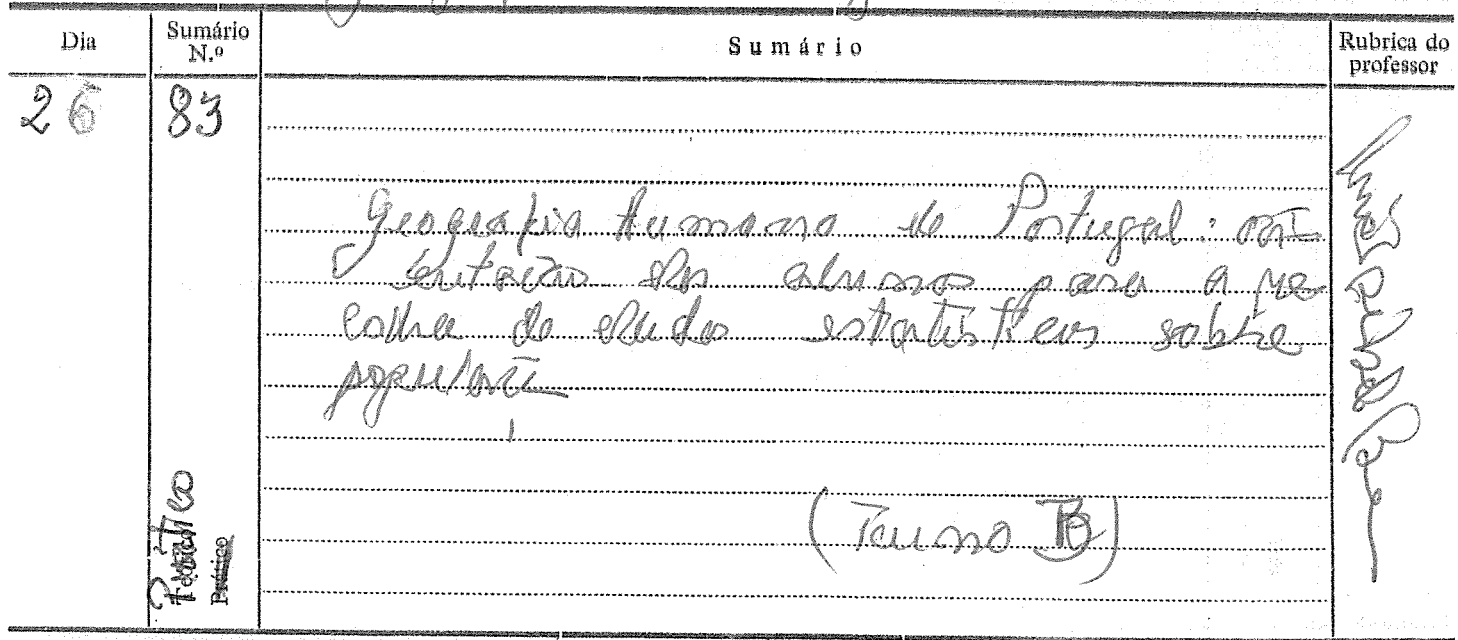 Dia Sumário N.º Sumário Rubrica do professor
26 83
Geografia Humana de Portugal: ori
entação dos alunos para a re
colha de dados estatísticos sobre
população
(Turma B)
Prático
Teórico
Prático